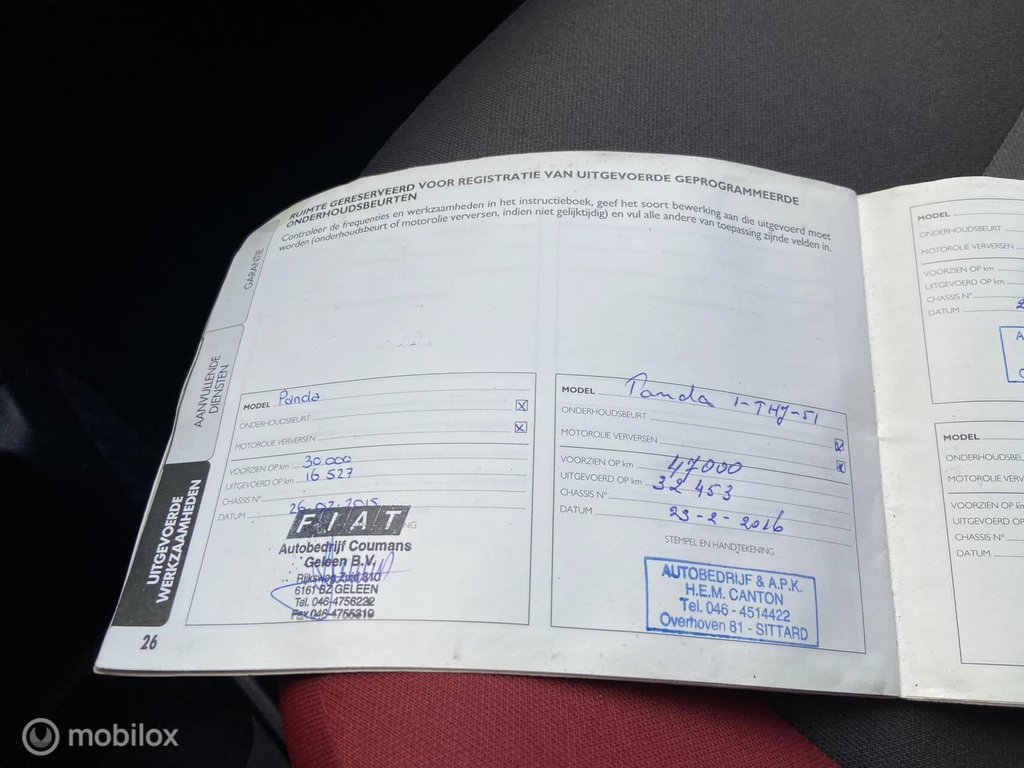 RUIMTE GERESERVEERD VOOR REGISTRATIE VAN UITGEVOERDE GEPROGRAMMEERDE
ONDERHOUDSBEURTEN
Controleer de frequenties en werkzaamheden in het instructieboek, geef het soort bewerking aan die uitgevoerd moet
worden (onderhoudsbeurt of motorolie verversen, indien niet gelijktijdig) en vul alle andere van toepassing zijnde velden in.
GARANTIE
AANVULLENDE
DIENSTEN
UITGEVOERDE
WERKZAAMHEDEN
MODEL Panda
ONDERHOUDSBEURT
MOTOROLIE VERVERSEN
VOORZIEN OP km 30.000
UITGEVOERD OP km 16 527
CHASSIS N°
DATUM 2015
FIAT
Autobedrijf Coumans
Geleen B.V.
Rijksweg Zuid 310
6161 BZ GELEEN
Tel. 046-4756222
Fax 046-4755310
26
MODEL Panda 1-THJ-51
ONDERHOUDSBEURT
MOTOROLIE VERVERSEN
VOORZIEN OP km 47000
UITGEVOERD OP km 32 453
CHASSIS N°
DATUM 23-2-2016
STEMPEL EN HANDTEKENING
AUTOBEDRIJF & A.P.K.
H.E.M. CANTON
Tel. 046 - 4514422
Overhoven 81 - SITTARD
MODEL
ONDERHOUDSBEURT
MOTOROLIE VERVERSEN
VOORZIEN OP km
UITGEVOERD OP km
CHASSIS N°
DATUM
MODEL
ONDERHOUDSBEU
MOTOROLIE VERVERSE
VOORZIEN OP km
UITGEVOERD OP k
CHASSIS N°
DATUM
mobilox